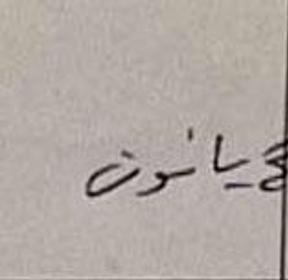 يانون